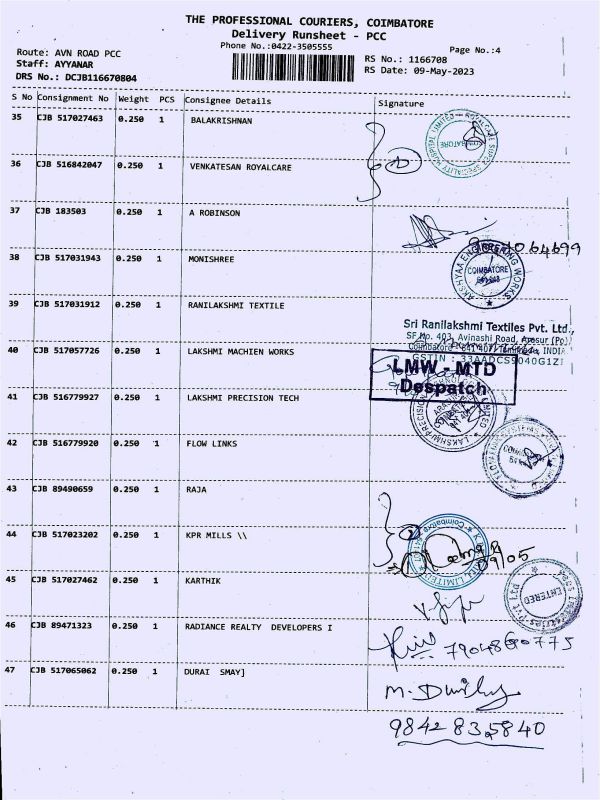 THE PROFESSIONAL COURIERS, COIMBATORE
Delivery Runsheet - PCC
Phone No.:0422-3505555
Page No.:4
Route: AVN ROAD PCC
Staff: AYYANAR
DRS No.: DCJB116670804
RS No.: 1166708
RS Date: 09-May-2023
S No Consignment No Weight PCS Consignee Details Signature
35 CJB 517027463 0.250 1 BALAKRISHNAN
ROYALCARE SUPER SPECIALITY HOSPITAL LIMITED
COIMBATORE
36 CJB 516842047 0.250 1 VENKATESAN ROYALCARE
37 CJB 183503 0.250 1 A ROBINSON
38 CJB 517031943 0.250 1 MONISHREE
AKSHYAA ENGINEERING WORKS
COIMBATORE
39 CJB 517031912 0.250 1 RANILAKSHMI TEXTILE
Sri Ranilakshmi Textiles Pvt. Ltd.,
SF.No. 403, Avinashi Road, Arasur (Po)
GSTIN : 33AADCS9040G1Z1
40 CJB 517057726 0.250 1 LAKSHMI MACHIEN WORKS
LMW - MTD
Despatch
41 CJB 516779927 0.250 1 LAKSHMI PRECISION TECH
42 CJB 516779920 0.250 1 FLOW LINKS
43 CJB 89490659 0.250 1 RAJA
44 CJB 517023202 0.250 1 KPR MILLS \\
9/05
45 CJB 517027462 0.250 1 KARTHIK
ENTERED
46 CJB 89471323 0.250 1 RADIANCE REALTY DEVELOPERS I
47 CJB 517065062 0.250 1 DURAI SMAY]
9842835840